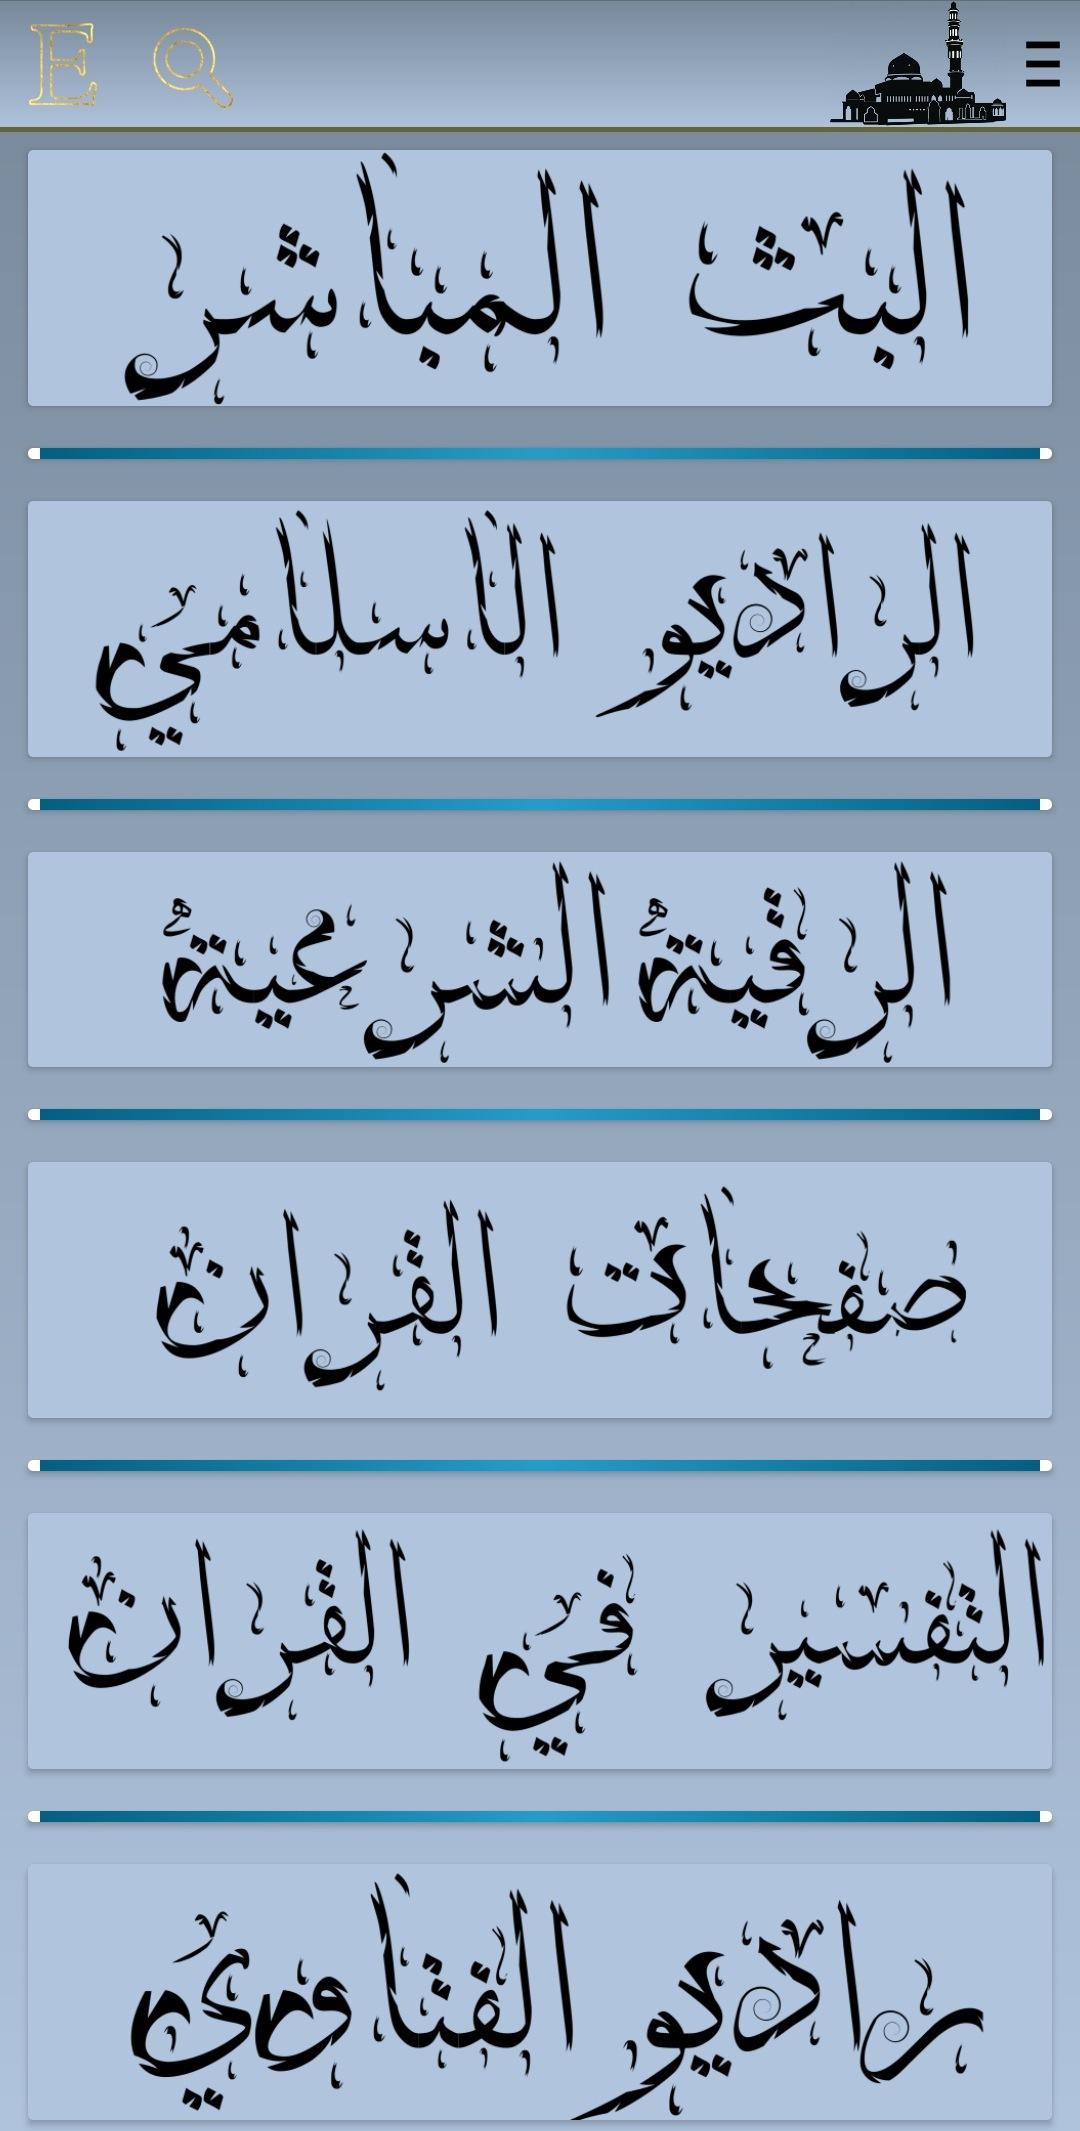 E
البث المباشر
الراديو الاسلامي
الرقية الشرعية
صفحات القران
التفسير في القران
راديو الفتاوي